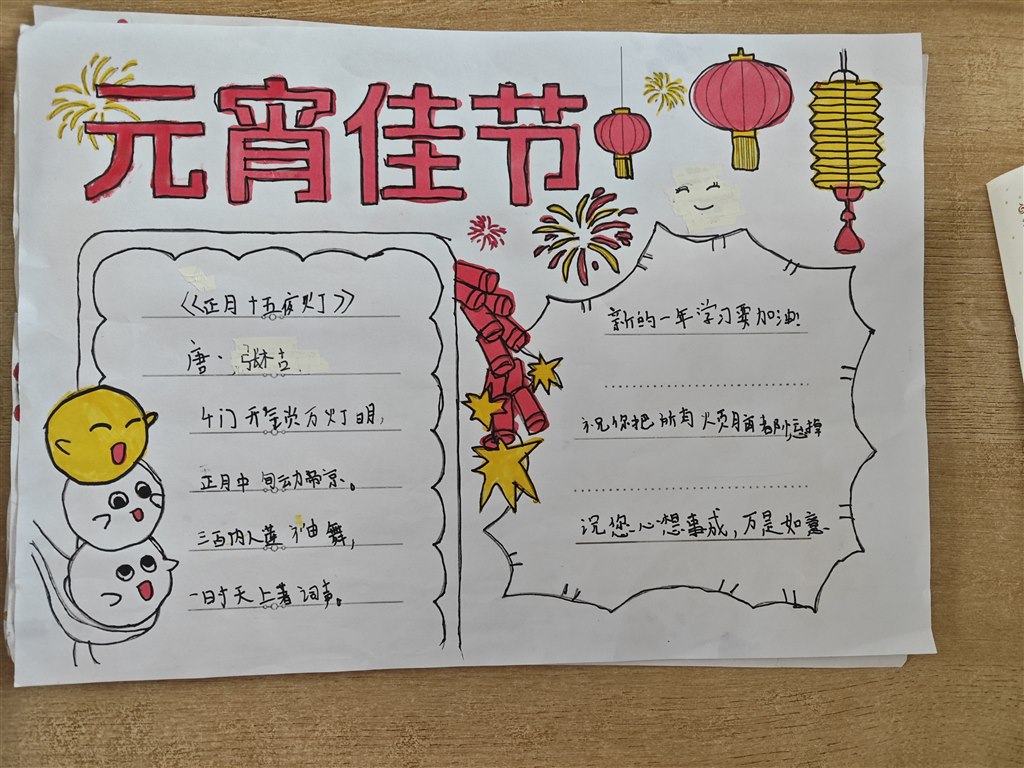 元宵佳节
《正月十五夜灯》
唐·张祜
千门开锁万灯明,
正月中旬动帝京。
三百内人莲袖舞,
一时天上著词声。
新的一年学习要加油!
祝你把所有烦恼都忘掉
祝您心想事成,万是如意